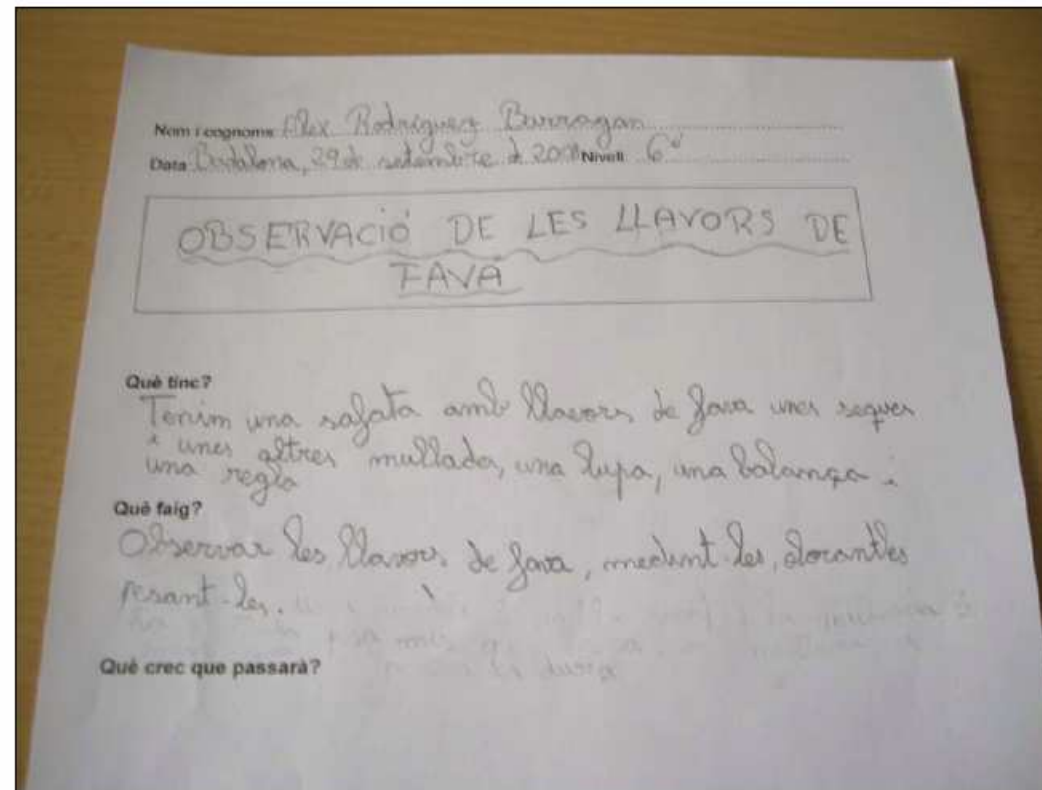 Nom i cognoms Alex Rodríguez Barragan
Data Badalona, 29 de setembre de Nivell 6è
OBSERVACIÓ DE LES LLAVORS DE
FAVA
Què tinc?
Tenim una safata amb llavors de fava unes seques
i unes altres mullades, una lupa, una balança i
una regla
Què faig?
Observar les llavors de fava, medint-les, olorantles
pesant-les.
Què crec que passarà?